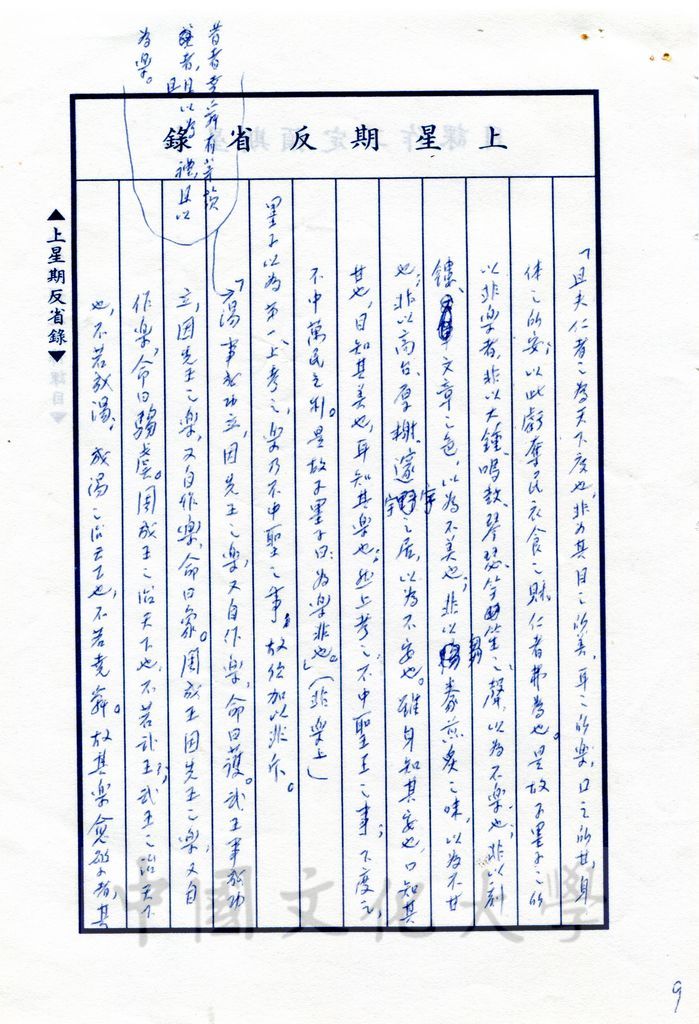 上星期反省錄
「且夫仁者之為天下度也，非為其目之所美，耳之所樂，口之所甘，身
体之所安；以此虧奪民衣食之財，仁者弗為也。是故子墨子之所
以非樂者，非以大鍾、鳴鼓、琴瑟、竽笙之聲，以為不樂也；非以刻
鏤、文章之色，以為不美也；非以芻豢煎炙之味，以為不甘
也；非以高台、厚榭、邃宇之居，以為不安也。雖身知其安也，口知其
甘也，目知其美也，耳知其樂也；然上考之，不中聖王之事；下度之，
不中萬民之利。是故子墨子曰：為樂非也。」（非樂上）
墨子以為第一、上考之，樂乃不中聖之事。故位加以非斥。
昔者堯舜有茅茨
者，且以為禮，且以
為樂。
「湯事成功立，因先王之樂，又自作樂，命曰護。武王事成功
立，因先王之樂，又自作樂，命曰象。周成王因先王之樂，又自
作樂，命曰騶虞。周成王之治天下也，不若武王；武王之治天下
也，不若成湯；成湯之治天下也，不若堯舜。故其樂愈繁者，其
▲上星期反省錄▼
課目
中國文化大學
9